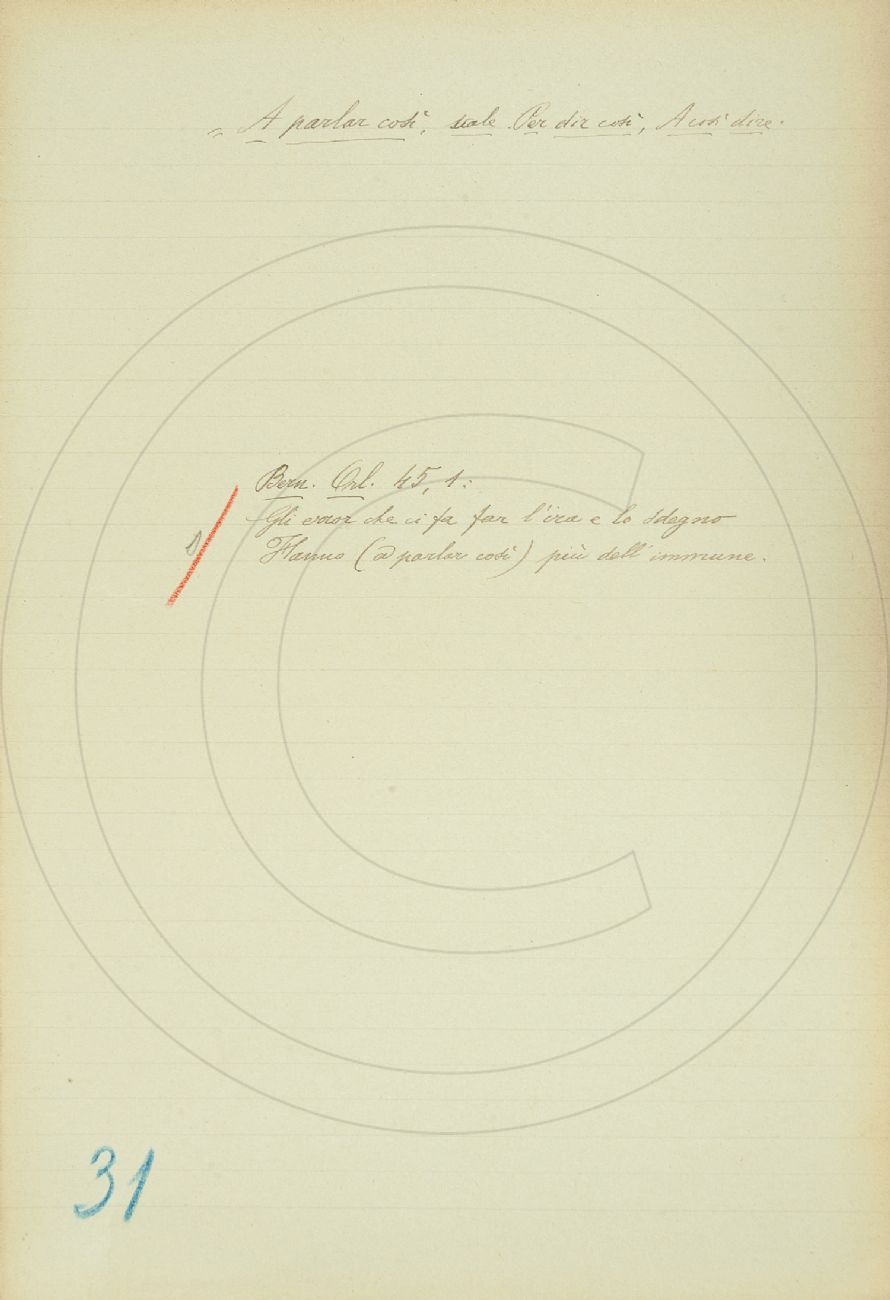 = A parlar così, vale Per dir così, A così dire.
Bern. Orl. 45, 1:
Gli error che ci fa far l'ira e lo sdegno
Hanno (a parlar così) più dell'immune.
31